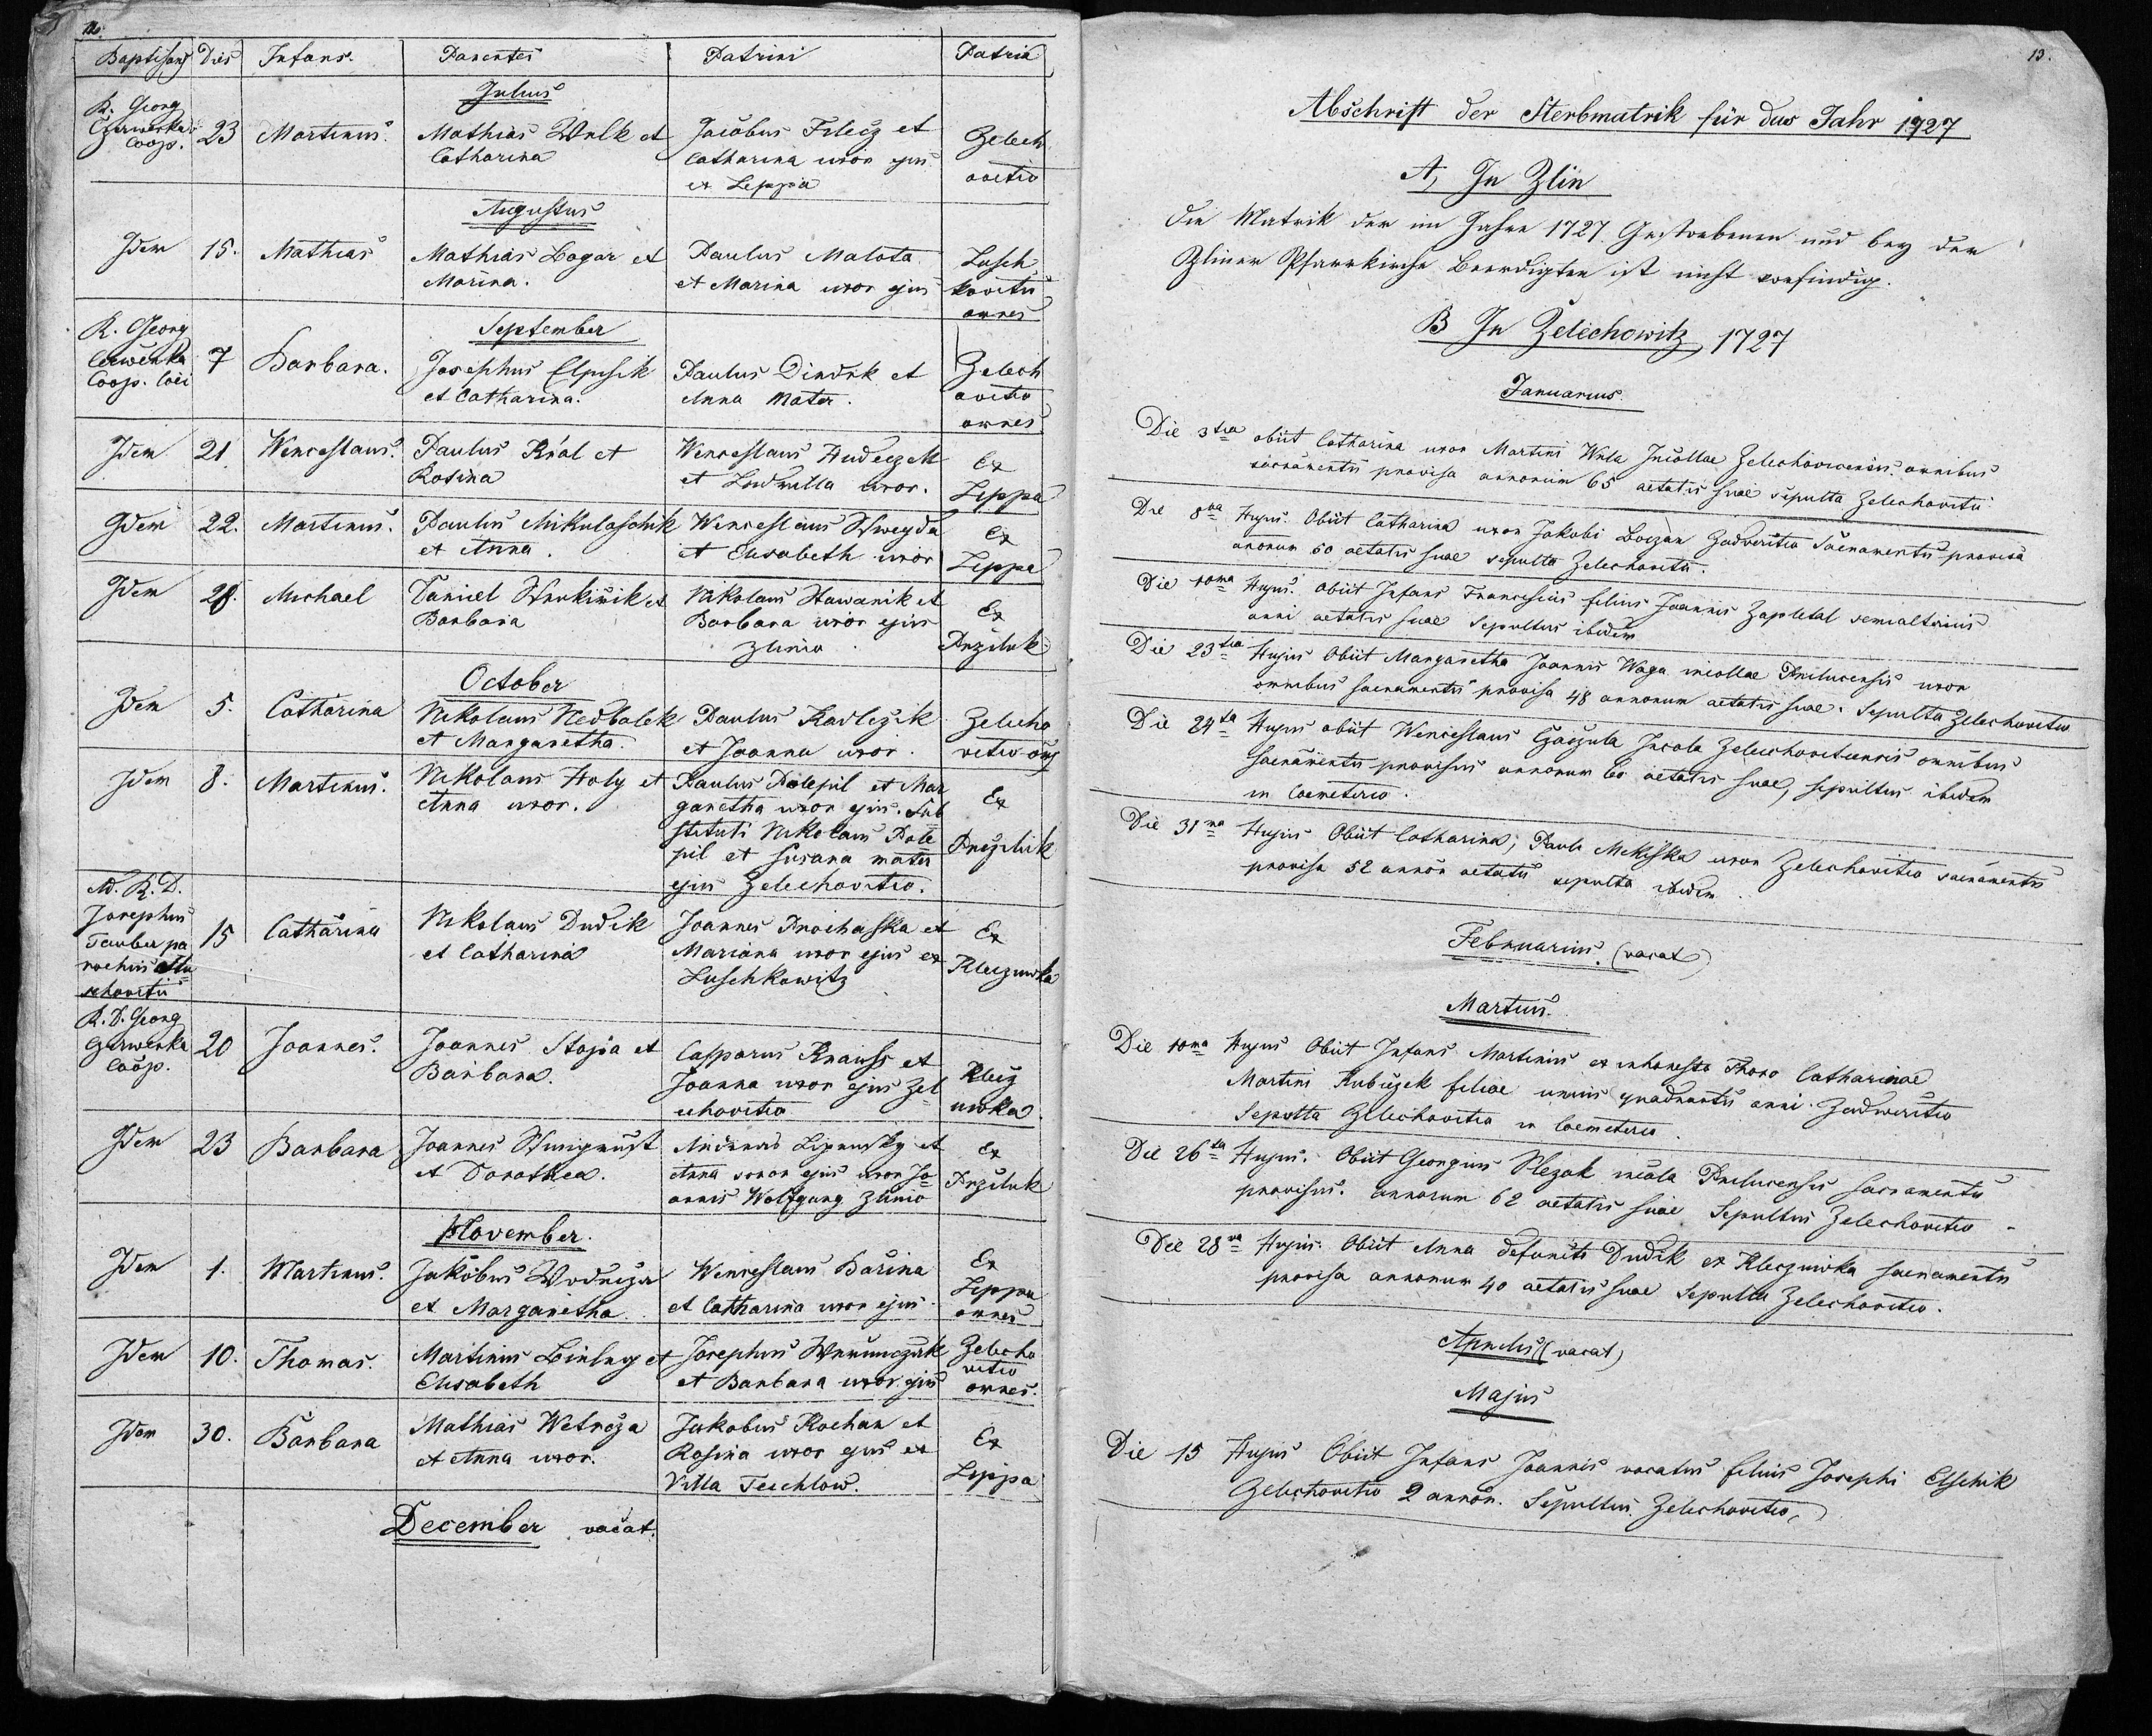 12.
Baptisans Dies Infans. Parentes Patrini Patria
Julius
R. Georg
Czerwenka
Coop. 23 Martinus. Mathias Wulk et
Catharina
Jacobus Filecz et
Catharina uxor ejus
ex Leppa
Zelech
ovitio
Augustus
Idem 15. Mathias Mathias Bogar et
Marina.
Paulus Malota
et Marina uxor ejus
Lusch
kovitii
omnes
September
R. Georg
Czerwenka
Coop. loci 7 Barbara. Josephus Elpschik
et Catharina.
Paulus Dindrk et
Anna Mater.
Zelech
ovitio
omnes
Idem 21. Wenceslaus. Paulus Král et
Rosina
Wenceslaus Hudeczek
et Ludmilla uxor.
Ex
Leppa
Idem 22. Martinus. Paulus Mikulaschik
et Anna.
Wenceslaus Schweyda
et Elisabeth uxor
Ex
Leppa
Idem 28. Michael Daniel et
Barbara
Nikolaus Hawanik et
Barbara uxor ejus
Zlinio
Ex
Prziluk
October
Idem 5. Catharina Nikolaus Nedbalek
et Margaretha.
Paulus Kavlczik
et Joanna uxor.
Zelecho
vitio oms
Idem 8. Martinus. Nikolaus Holy et
Anna uxor.
Paulus Polepil et Mar
garetha uxor ejus. Sub
stituti Nikolaus Pole
pil et Susana mater
ejus Zelechovitio.
Ex
Przyluk
Ad. R. D.
Josephus
Tauber pa
rochus Slu
schovitii 15 Catharina Nikolaus Dudik
et Catharina
Joannes Prochaska et
Mariana uxor ejus ex
Luschkowitz
Ex
Kleczuwka
R. D. Georg
Czerwenka
Coop. 20 Joannes. Joannes Stoja et
Barbara.
Casparus Knauss et
Joanna uxor ejus Zel
echovitio
Klecz
uwka.
Idem 23 Barbara Joannes
et Dorothea.
Andreas Lipensky et
Anna soror ejus uxor Jo
annis Wolfgang Zlinio
Ex
Przyluk
November.
Idem 1. Martinus. Jakobus Wodicza
et Margaretha.
Wenceslaus Barina
et Catharina uxor ejus
Ex
Leppa
omnes
Idem 10. Thomas. Martinus et
Elisabeth
Josephus
et Barbara uxor ejus
Zelecho
vitio
omnes.
Idem 30. Barbara Mathias Wetrcza
et Anna uxor.
Jakobus Kochan et
Rosina uxor ejus ex
Villa Teschlow.
Ex
Leppa
December vacat.
13.
Abschrift der Sterbmatrik für das Jahr 1727
A, In Zlin
Die Matrik der im Jahre 1727 Gestorbenen und bey der
Zliner Pfarrkirche Beerdigten ist nicht vorfindig.
B In Zelechowitz 1727
Januarius.
Die 3tia obiit Catharina uxor Martini Wula Incollae Zelechovicensis omnibus
sacramentis provisa annorum 65 aetatis suae sepulta Zelechovitii
Die 8va Hujus. Obiit Catharina uxor Jakobi Boczan Zadveritio Sacramentis provisa
annorum 50 aetatis suae sepulta Zelechovitii.
Die 10ma Hujus. obiit Infans Franciscus filius Joannis Zapletal semialterius
anni aetatis suae Sepultus ibidem
Die 23tia Hujus Obiit Margaretha Joannis Waga incollae Prilucensis uxor
omnibus sacramentis provisa 48 annorum aetatis suae. Sepulta Zelechovitio
Die 24ta Hujus obiit Wenceslaus Gaczula Incola Zelechovitiensis omnibus
sacramentis provisus annorum 60 aetatis suae, sepultus ibidem
in Coemeterio.
Die 31ma Hujus Obiit Catharina, Pauli Mikeska uxor Zelechovitio sacramentis
provisa 52 annor aetatis sepulta ibidem.
Februarius. (vacat)
Martius.
Die 10ma Hujus Obiit Infans Martinus ex inhonesto Thoro Catharinae
Martini Kubiczek filiae unius quadrantis anni Zadweritio
Sepulta Zelechovitio in Coemeterio.
Die 26ta Hujus. Obiit Georgius Slezak incola Prilucensis sacramentis
provisus. annorum 62 aetatis suae Sepultus Zelechovitio.
Die 28va Hujus. Obiit Anna defuncti Dudik ex Kleczuwka sacramentis
provisa annorum 40 aetatis suae Sepulta Zelechovitio.
Aprilis (vacat)
Majus
Die 15 Hujus Obiit Infans Joannis vocatus filius Josephi Elschik
Zelechovitio 2 annor. Sepultus Zelechovitio,